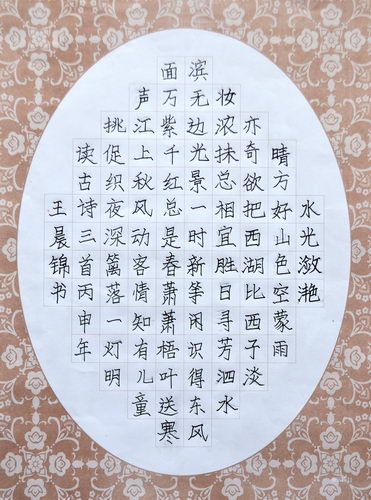 水光潋滟
晴方好山色空蒙雨
亦奇欲把西湖比西子淡
妆浓抹总相宜胜日寻芳泗水
滨无边光景一时新等闲识得东风
面万紫千红总是春萧萧梧叶送寒
声江上秋风动客情知有儿童
挑促织夜深篱落一灯明
读古诗三首丙申年
王晨锦书